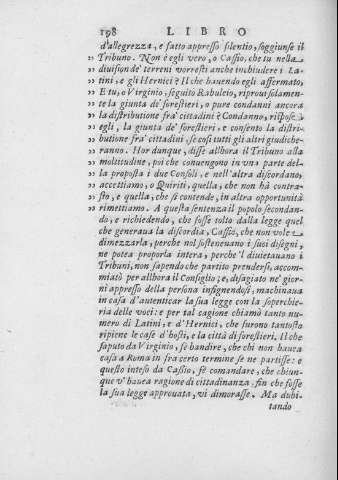 198 LIBRO
d'allegrezza, e fatto appresso silentio, soggiunse il
„ Tribuno. Non è egli vero, o Cassio, che tu nella
„ diuision de' terreni vorresti anche inchiudere i La-
„ tini, e gli Hernici? Il che hauendo egli affermato,
„ E tu, o Virginio, seguitò Rabuleio, riproui solamen-
„ te la giunta de' forestieri, o pure condanni ancora
„ la distributione fra' cittadini? Condanno, rispose
„ egli, la giunta de' forestieri, e consento la distri-
„ butione fra' cittadini, se così tutti gli altri giudiche-
„ ranno. Hor dunque, disse allhora il Tribuno alla
„ moltitudine, poi che conuengono in vna parte del-
„ la proposta i due Consoli, e nell'altra discordano,
„ accettiamo, o Quiriti, quella, che non hà contra-
„ sto, e quella, che si contende, in altra opportunità
„ rimettiamo. A questa sentenza il popolo secondan-
do, e richiedendo, che fosse tolto dalla legge quel
che generaua la discordia, Cassio, che non vole
dimezzarla, perche nol sosteneuano i suoi disegni,
ne potea proporla intera, perche'l diuietauano i
Tribuni, non sapendo che partito prendersi, accom-
miatò per allhora il Consiglio; e, disagiato ne' gior-
ni appresso della persona infignendosi, machinaua
in casa d'autenticar la sua legge con la soperchie-
ria delle voci: e per tal cagione chiamò tanto nu-
mero di Latini, e d'Hernici, che furono tantosto
ripiene le case d'hosti, e la città di forestieri. Il che
saputo da Virginio, fè bandire, che chi non hauea
casa a Roma in fra certo termine se ne partisse: e
questo inteso da Cassio, fè comandare, che chiun-
que v'hauea ragione di cittadinanza, fin che fosse
la sua legge approuata, vi dimorasse. Ma dubi-
tando